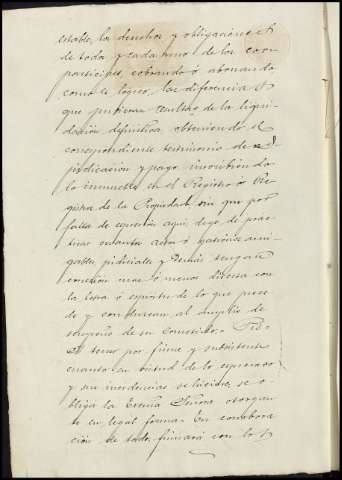 estable, los derechos y obligaciones
de todos y cada uno de los co-
partícipes, cobrando ó abonando
como es lógico, las diferencias
que pudieran resultar de la liqui-
dación definitiva, obteniendo el
correspondiente testimonio de
judicación y pago, inscribiendo
los inmuebles en el Registro ó Re-
gistros de la Propiedad, sin que por
falta de expresión aquí, deje de prac-
ticar cuantos actos ó gestiones ami-
gables, judiciales y demás tengan
conexión más ó menos directa con
la letra ó espíritu de lo que prece-
de y conduzcan al amplio de-
sempeño de su cometido.
A tener por firme y subsistente
cuanto en virtud de lo expresado
y sus incidencias se hiciere, se o-
bliga la Excma Señora otorgan-
te en legal forma. En corrobora-
ción de todo, firmará con los